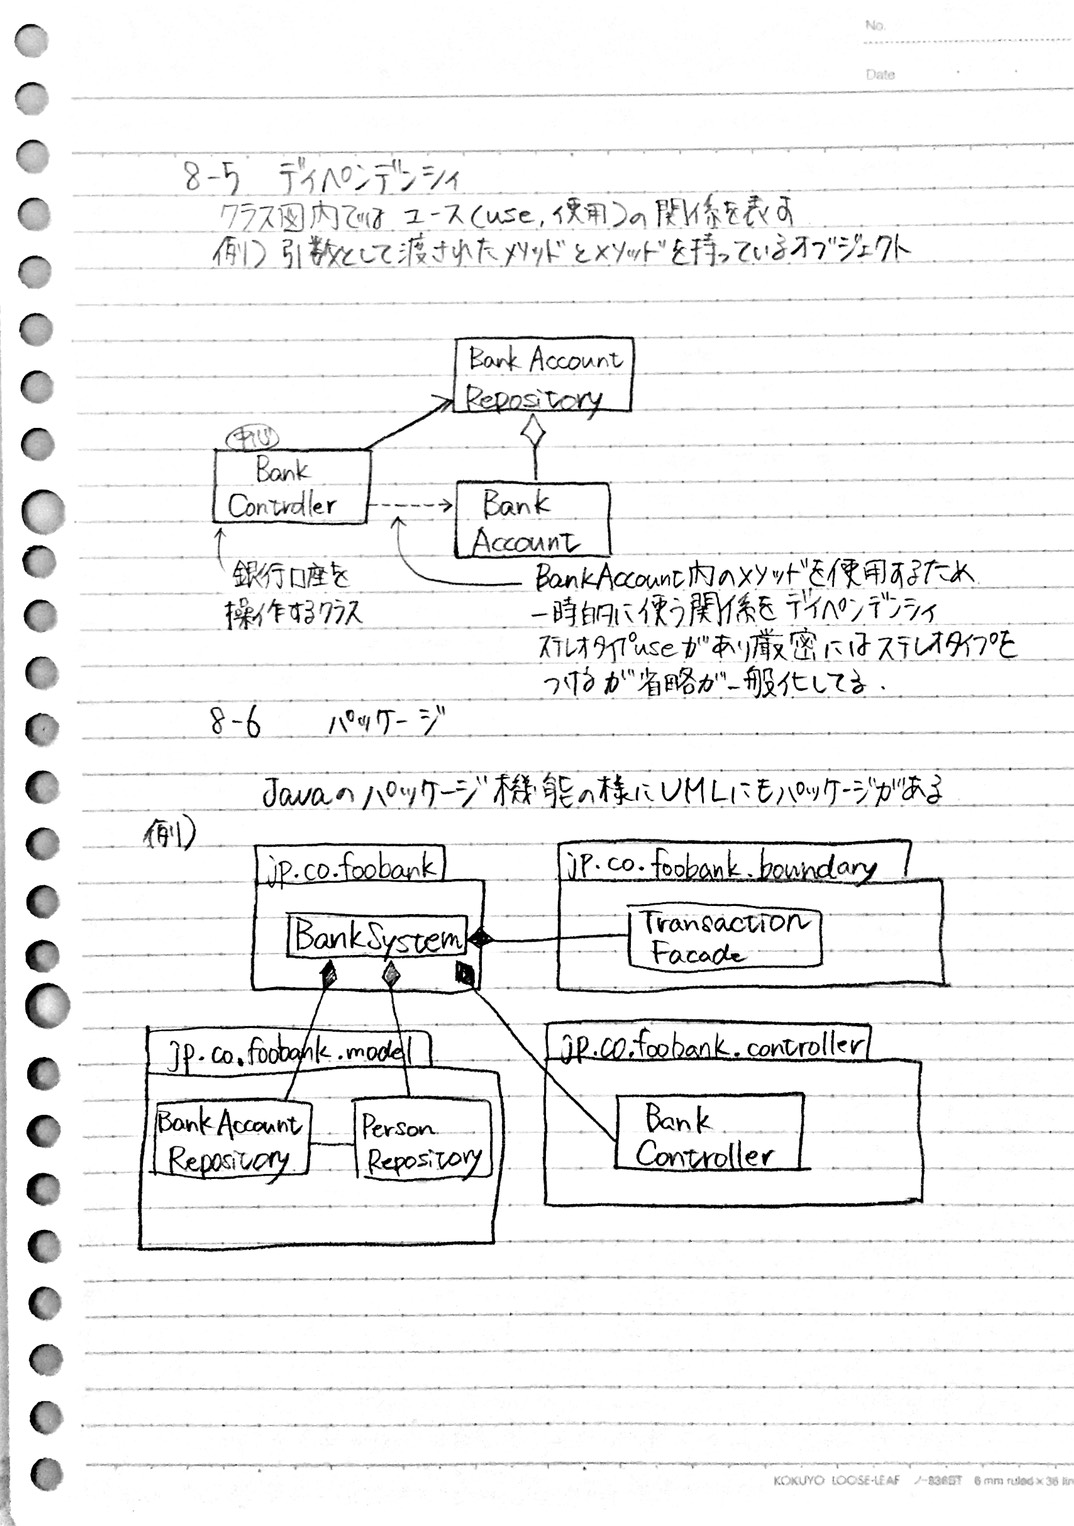 No.
Date
8-5 ディペンデンシィ
クラス図内では ユース(use,使用)の関係を表す
例) 引数として渡されたメソッドとメソッドを持っているオブジェクト
Bank Account
Repository
中心
Bank
Controller
Bank
Account
銀行口座を
操作するクラス
BankAccount内のメソッドを使用するため
一時的に使う関係をディペンデンシィ
ステレオタイプuseがあり厳密にはステレオタイプを
つけるが省略が一般化してる.
8-6 パッケージ
Javaのパッケージ機能の様にUMLにもパッケージがある
例)
jp.co.foobank
BankSystem
jp.co.foobank.boundary
Transaction
Facade
jp.co.foobank.model
Bank Account
Repository
Person
Repository
jp.co.foobank.controller
Bank
Controller
KOKUYO LOOSE-LEAF ノ-836BT 6 mm ruled × 36 lin